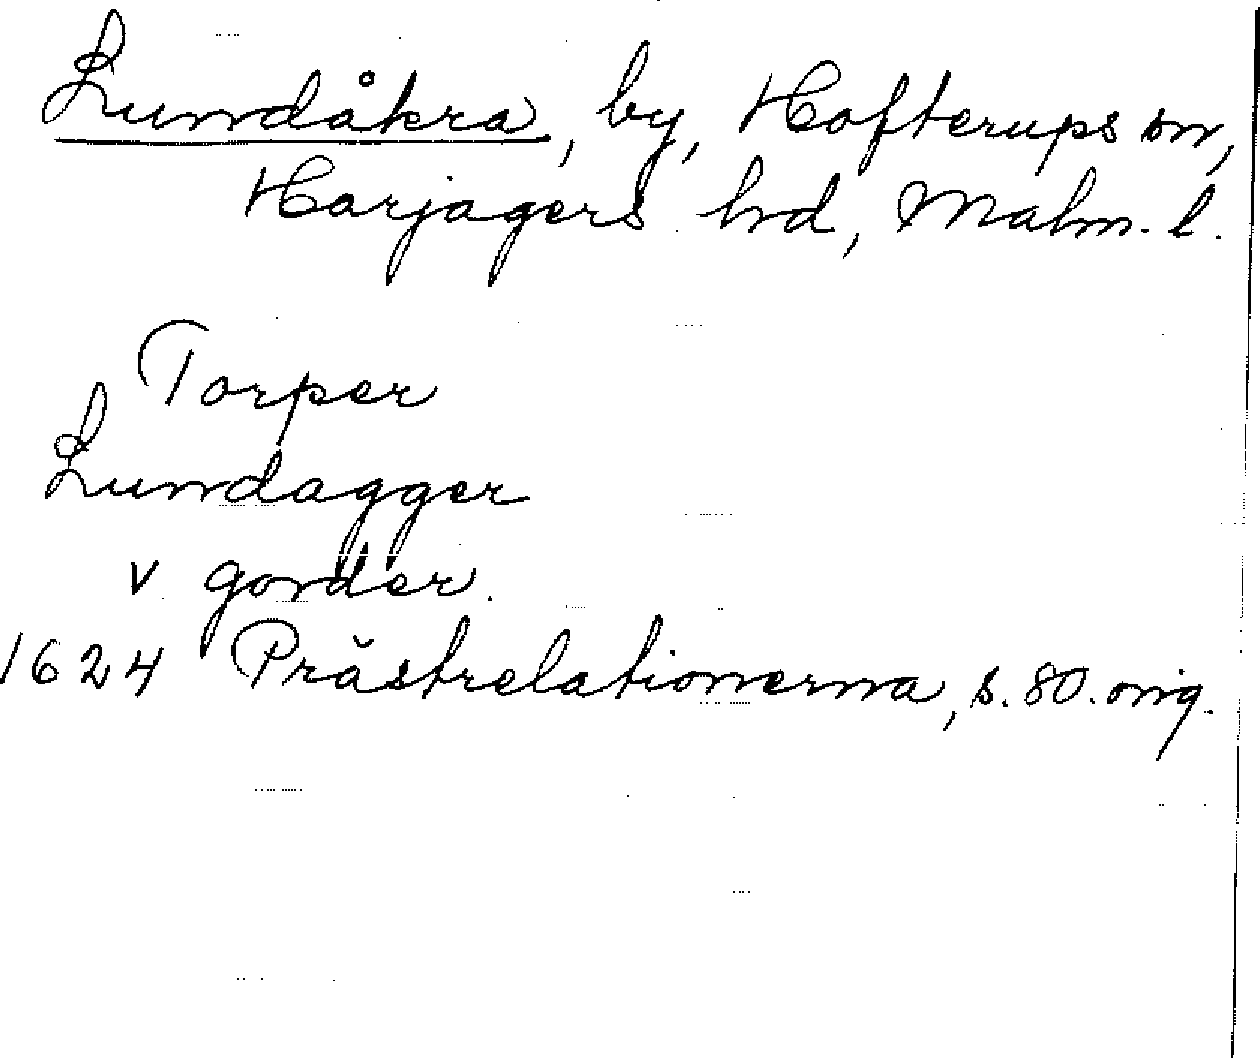 Lundåkra, by, Hofterups sn,
Harjagers hd, Malm. l.
Torper
Lundagger
v gorder.
1624 Prästrelationerna, s. 80. orig.